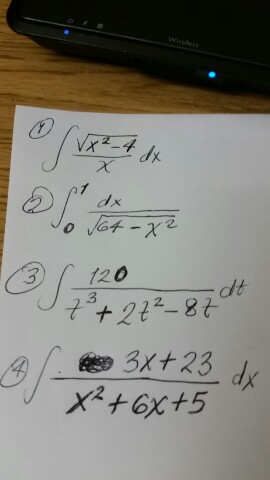 Wireless
① ∫ √(x²-4) / x dx
② ∫₀¹ dx / √(64 - x²)
③ ∫ 120 / (t³ + 2t² - 8t) dt
④ ∫ 3x + 23 / (x² + 6x + 5) dx